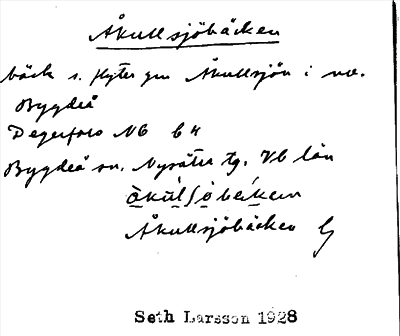 Åkullsjöbäcken
bäck s. flyter gm Åkullsjön i nv.
Bygdeå
Degerfors NO b 4
Bygdeå sn. Nysätra tg. Vb län
Åkullsjöbäcken
Seth Larsson 1928